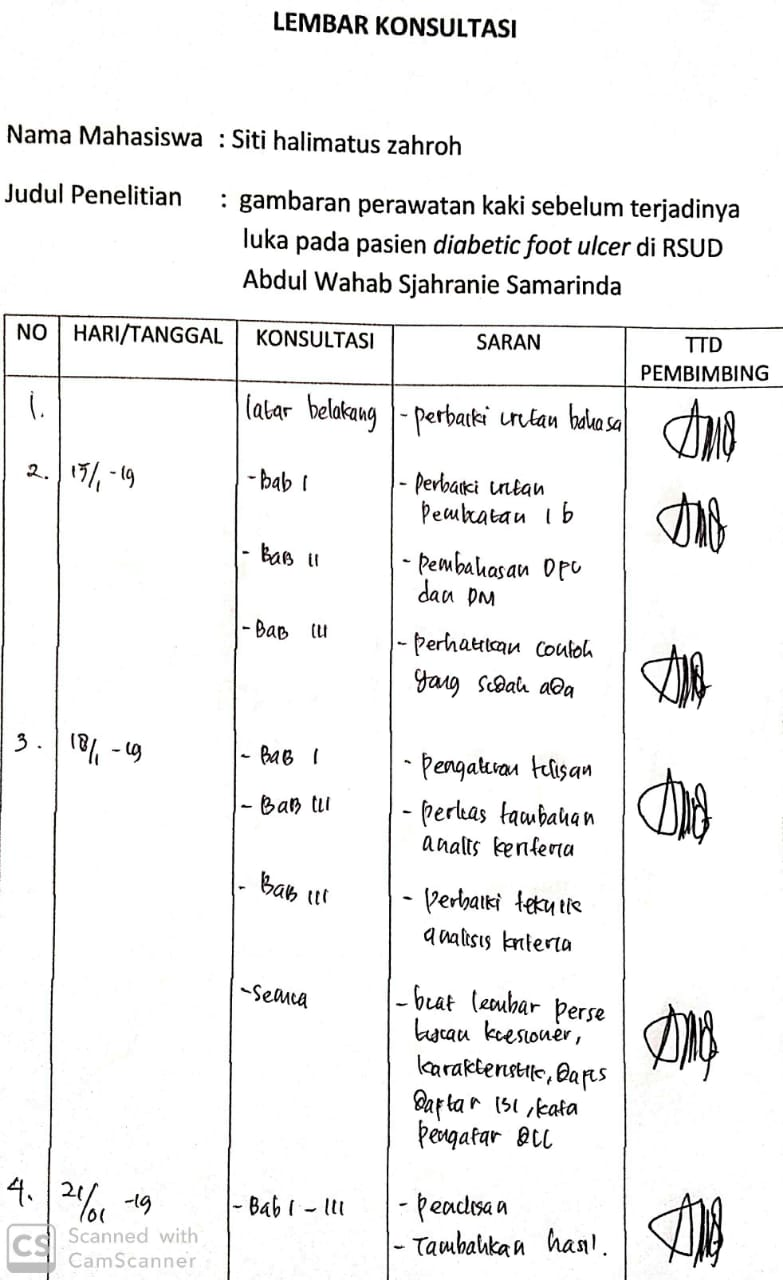 LEMBAR KONSULTASI
Nama Mahasiswa : Siti halimatus zahroh
Judul Penelitian : gambaran perawatan kaki sebelum terjadinya
luka pada pasien diabetic foot ulcer di RSUD
Abdul Wahab Sjahranie Samarinda
NO HARI/TANGGAL KONSULTASI SARAN TTD
PEMBIMBING
1. latar belakang - perbaiki urutan bahasa
2. 15/1 -19 - Bab I - Perbaiki urutan
Pembuatan 1 b
- BAB II - Pembahasan DFU
dan DM
- BAB III - perhatikan contoh
yang sudah ada
3. 18/1 -19 - BAB I - Pengaturan tulisan
- BAB III - perluas tambahan
analis kriteria
- BAB III - Perbaiki teknik
analisis kriteria
- Semua - buat lembar perse
tujuan kuesioner,
karakteristik, Dapus
Daftar ISI, kata
pengatar Dll
4. 21/01 -19 - Bab I - III - penulisan
- Tambahkan hasil.
CS Scanned with
CamScanner